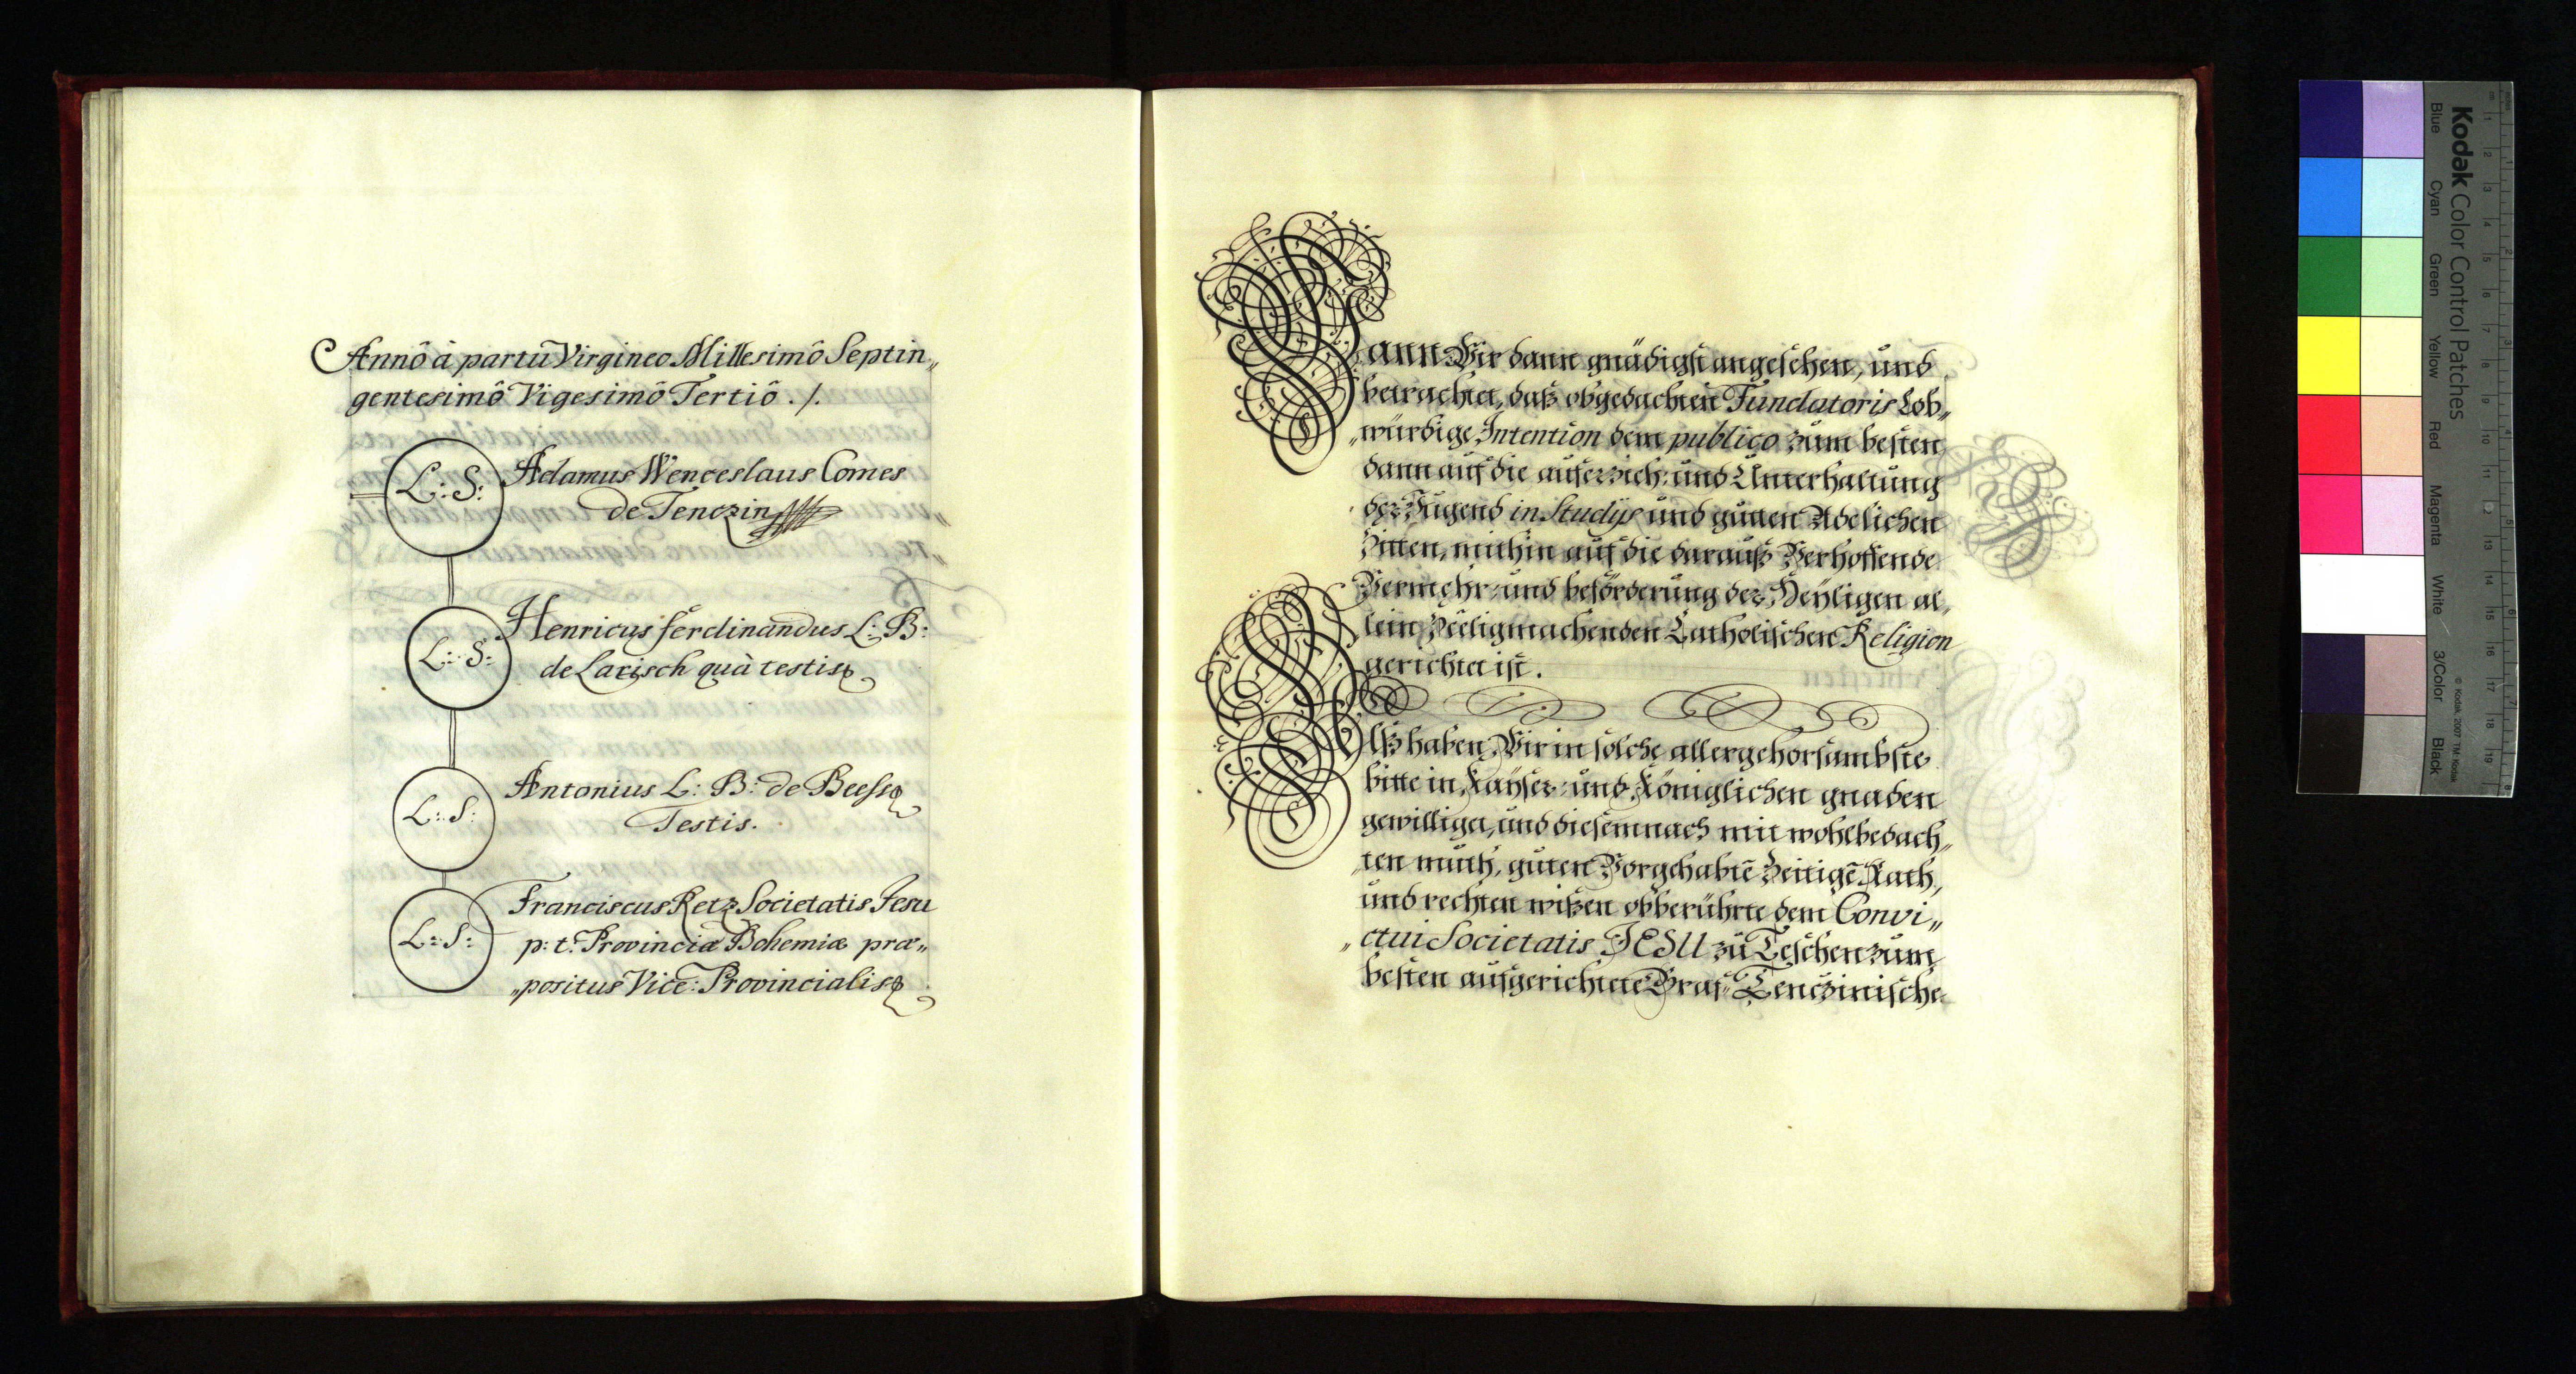 Annô â partu Virgineo Millesimô Septin„
gentesimô Vigesimô Tertiô ./.
L: S: Adamus Wenceslaus Comes
de Tenczin
L: S: Henricus ferdinandus L: B:
de Larisch quà testis
L: S: Antonius L: B: de Beess
Testis.
L: S: Franciscus Retz Societatis Jesu
p: t: Provinciæ Bohemiæ præ„
„positus Vice: Provincialis
Wann Wir dann gnädigst angesehen, und
betrachtet, daß obgedachten Fundatoris Lob„
„würdige Intention dem publico zum besten
dann auf die auferzieh: und Unterhaltung
der Jugend in Studijs und gutten Adelichen
Sitten, mithin auf die darauß Verhoffende
Vermehr: und beförderung der Heyligen al„
lein Seeligmachenden Catholischen Religion
gerichtet ist.
Alß haben Wir in solche allergehorsambste
bitte in Kayser: und Königlichen gnaden
gewilliget, und diesemnach mit wohlbedach„
„ten muth, guten Vorgehabtē Zeitigē Rath,
und rechten wißen obberührte dem Convi„
„ctui Societatis JESU zu Teschen zum
besten aufgerichtete Graf: Tenczinische
Kodak Color Control Patches
Blue Cyan Green Yellow Red Magenta White 3/Color Black
© Kodak, 2007 TM: Kodak